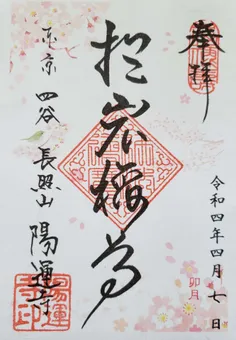 奉拝
於岩稲荷
東京 四谷 長照山 陽運寺
令和四年四月七日
卯月
陽運寺印